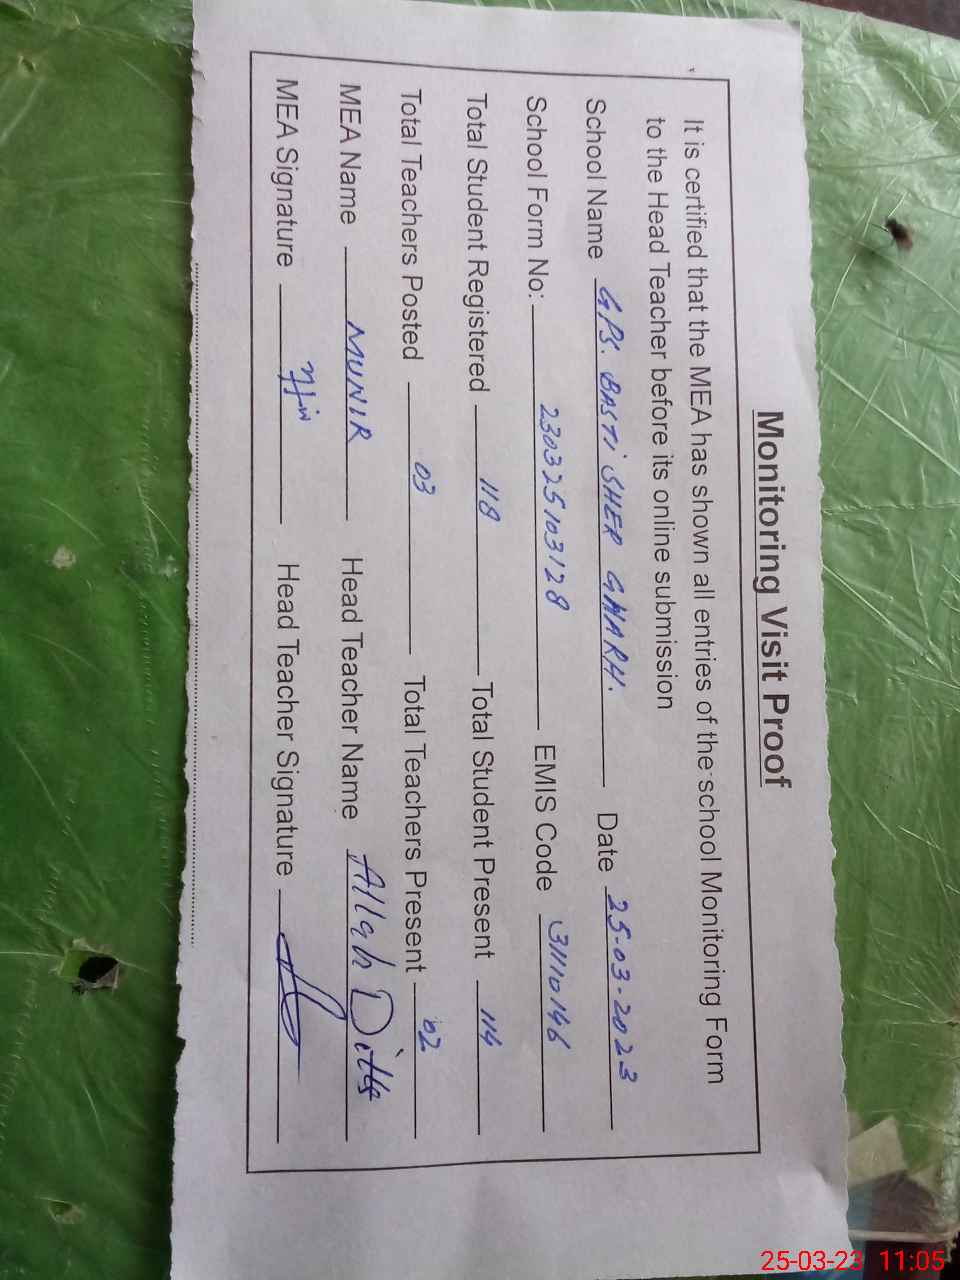 Monitoring Visit Proof
It is certified that the MEA has shown all entries of the school Monitoring Form
to the Head Teacher before its online submission
School Name GPS. BASTI SHER GHARH. Date 25-03-2023
School Form No: 230325103128 EMIS Code 31110146
Total Student Registered 118 Total Student Present 114
Total Teachers Posted 03 Total Teachers Present 02
MEA Name MUNIR Head Teacher Name Allah Ditta
MEA Signature Head Teacher Signature
25-03-23 11:05